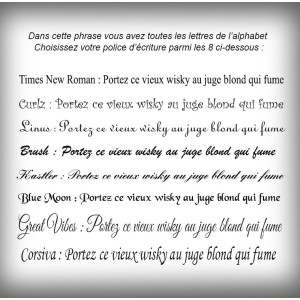 Dans cette phrase vous avez toutes les lettres de l'alphabet
Choisissez votre police d'écriture parmi les 8 ci-dessous :
Times New Roman : Portez ce vieux wisky au juge blond qui fume
Curlz : Portez ce vieux wisky au juge blond qui fume
Linus : Portez ce vieux wisky au juge blond qui fume
Brush : Portez ce vieux wisky au juge blond qui fume
Kastler : Portez ce vieux wisky au juge blond qui fume
Blue Moon : Portez ce vieux wisky au juge blond qui fume
Great Vibes : Portez ce vieux wisky au juge blond qui fume
Corsiva : Portez ce vieux wisky au juge blond qui fume